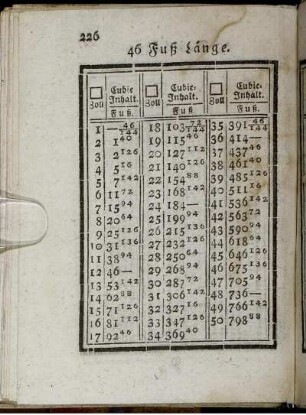 226
46 Fuß Länge.
Zoll Cubie Inhalt. Zoll Cubie- Inhalt. Zoll Cubie- Inhalt.
Fuß. Fuß. Fuß.
1 — 46/144 18 103 72/144 35 391 46/144
2 1 40 19 115 46 36 414 —
3 2 126 20 127 112 37 437 46
4 5 16 21 140 126 38 461 40
5 7 142 22 154 88 39 485 126
6 11 72 23 168 142 40 511 16
7 15 94 24 184 — 41 536 142
8 20 64 25 199 94 42 563 72
9 25 126 26 215 136 43 590 94
10 31 136 27 232 126 44 618 64
11 38 94 28 250 64 45 646 126
12 46 — 29 268 94 46 675 136
13 53 142 30 287 72 47 705 94
14 62 88 31 306 142 48 736 —
15 71 126 32 327 16 49 766 142
16 81 112 33 347 126 50 798 88
17 92 46 34 369 40